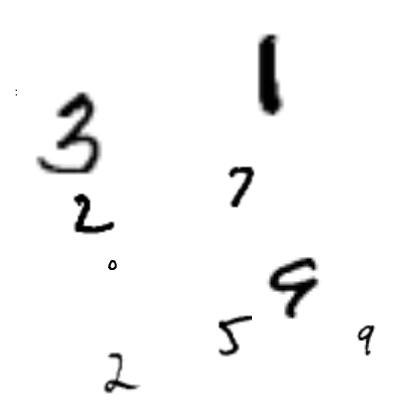 1
3
7
2
0
9
5
9
2